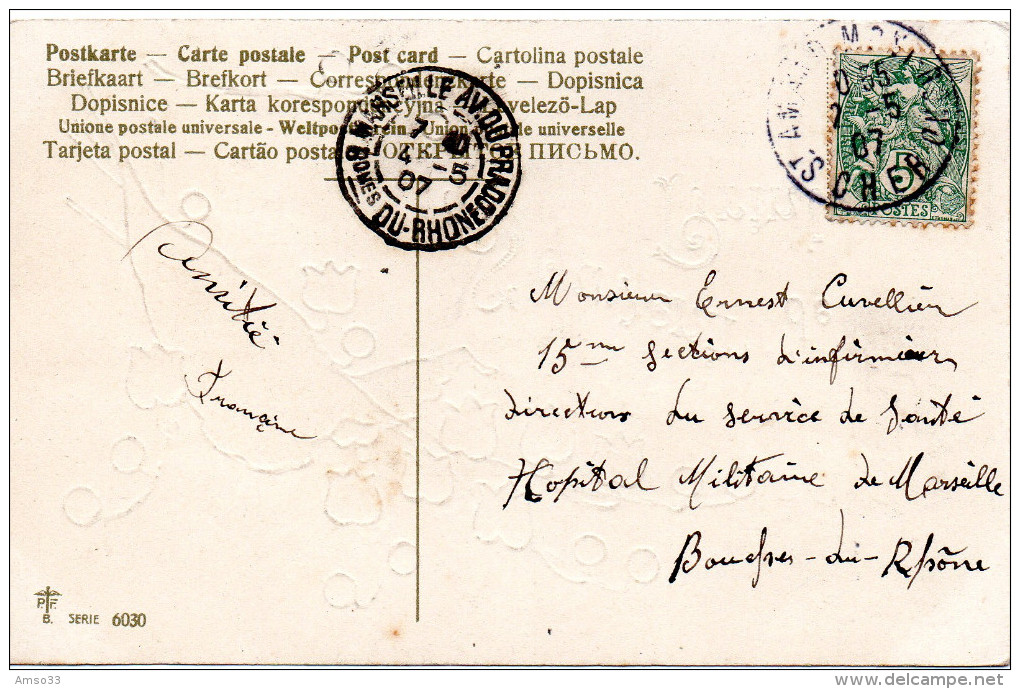 Postkarte — Carte postale — Post card — Cartolina postale
Briefkaart — Brefkort — Correspondenzkarte — Dopisnica
Dopisnice — Karta korespondencyjna — Levelező-Lap
Unione postale universale - Weltpostverein - Union postale universelle
Tarjeta postal — Cartão postal — ОТКРЫТОЕ ПИСЬМО.
MARSEILLE AV. DU PRADO
7 40
4 - 5
07
BCHES DU-RHONE
ST AMAND MONTROND
5
07
CHER
5
POSTES
Amitié
Françine
Monsieur Ernest Cuvellier
15me Sections d'infirmiers
directions du service de Santé
Hopital Militaire de Marseille
Bouches-du-Rhône
P. F.
B. SERIE 6030
Amso33
delcampe.net